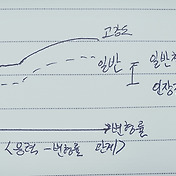 고강도
일반 = 일반
인장
변형률
<응력-변형률 관계>